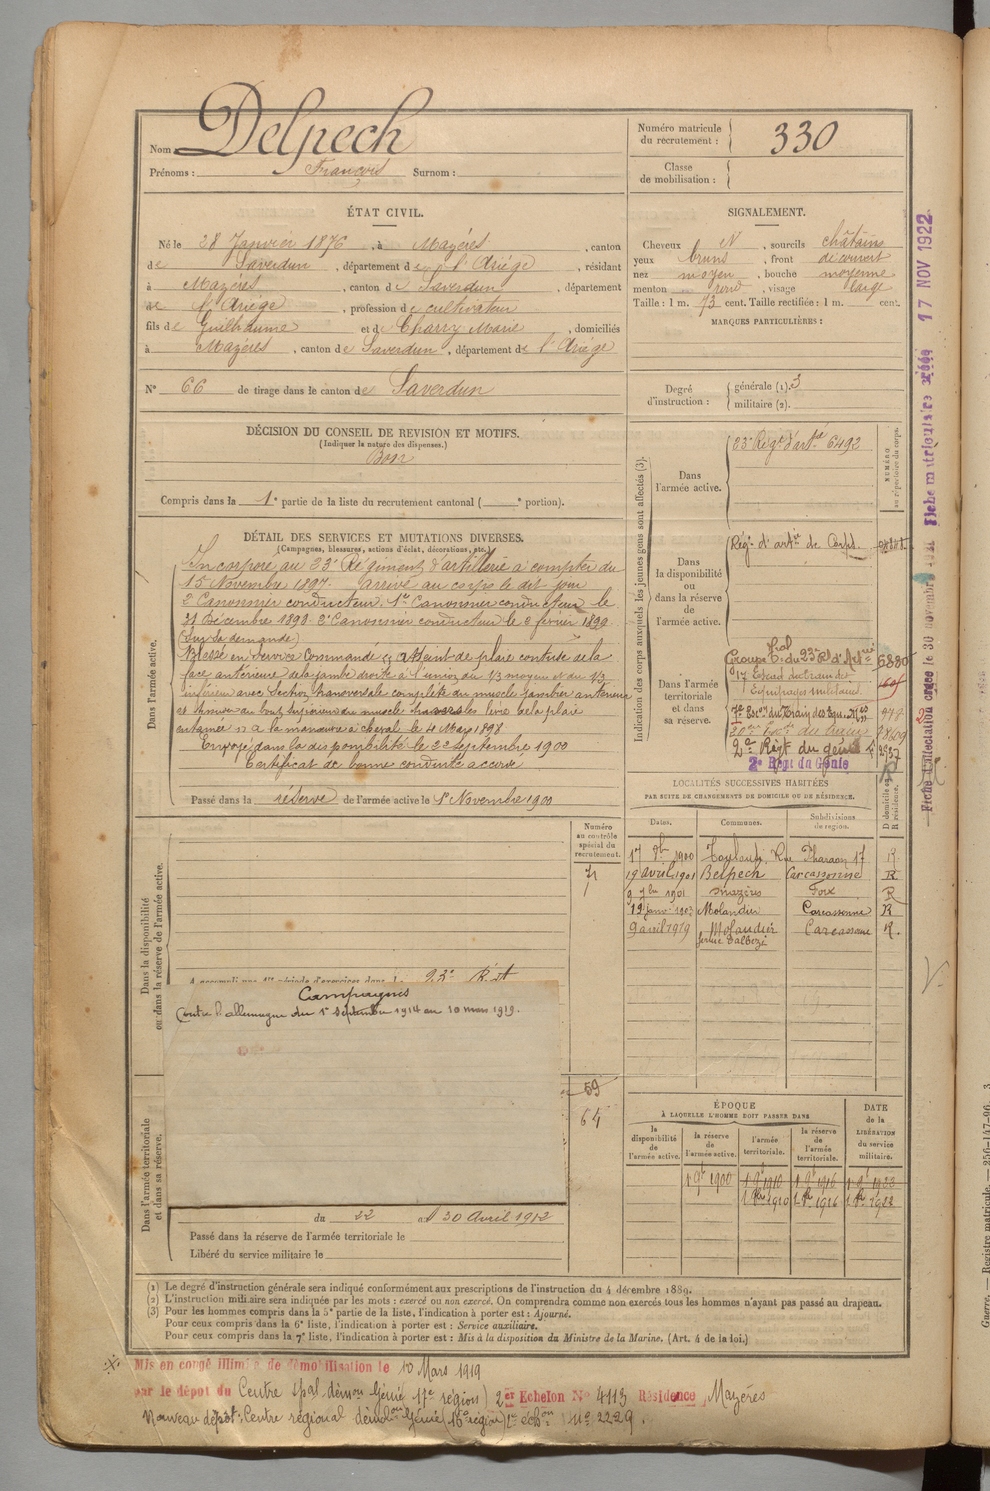 Nom Delpech
Prénoms : François Surnom :
Numéro matricule du recrutement : 330
Classe de mobilisation :
ÉTAT CIVIL.
Né le 28 Janvier 1876, à Mazères, canton
de Saverdun, département de l'Ariége, résidant
à Mazères, canton de Saverdun, département
de l'Ariége, profession de cultivateur
fils de Guillaume et de Charry Marie, domiciliés
à Mazères, canton de Saverdun, département de l'Ariége
N° 66 de tirage dans le canton de Saverdun
SIGNALEMENT.
Cheveux N, sourcils châtains
yeux bruns, front découvert
nez moyen, bouche moyenne
menton rond, visage large
Taille : 1 m. 73 cent. Taille rectifiée : 1 m. cent.
MARQUES PARTICULIÈRES :
Degré d'instruction : générale (1). 3
militaire (2).
DÉCISION DU CONSEIL DE REVISION ET MOTIFS.
(Indiquer la nature des dispenses.)
Bon
Compris dans la 1e partie de la liste du recrutement cantonal ( e portion).
DÉTAIL DES SERVICES ET MUTATIONS DIVERSES.
(Campagnes, blessures, actions d'éclat, décorations, etc.)
Dans l'armée active.
Incorporé au 23e Régiment d'artillerie à compter du
15 Novembre 1897. Arrivé au corps le dit jour
2e Canonnier conducteur. 1er Canonnier conducteur le
31 Décembre 1898. 2e Canonnier conducteur le 2 février 1899.
(Sur sa demande)
Blessé en service commandé : Atteint de plaie contuse de la
face antérieure de la jambe droite à l'union du 1/3 moyen et du 1/3
inférieur avec section transversale complète du muscle jambier antérieur
et
entamée » à la manœuvre à cheval le 4 Mars 1898
Envoyé dans la disponibilité le 22 Septembre 1900
Certificat de bonne conduite accordé
Passé dans la réserve de l'armée active le 1er Novembre 1900
Indication des corps auxquels les jeunes gens sont affectés (3).
NUMÉRO au répertoire du corps.
Dans l'armée active.
23e Régt d'artie 6492
Dans la disponibilité ou dans la réserve de l'armée active.
Régt d'artie de Corps.
Dans l'armée territoriale et dans sa réserve.
Groupe Tial du 23e Rt d'Artie 6880
17 Escad du train des
Équipages militaires
2e Régt du génie 2537
2e Régt du Génie
LOCALITÉS SUCCESSIVES HABITÉES
PAR SUITE DE CHANGEMENTS DE DOMICILE OU DE RÉSIDENCE.
Dates. Communes. Subdivisions de région. D domicile ou R résidence.
17 9bre 1900 Toulouse, Rue Pharaon 17 R
19 avril 1901 Belpech Carcassonne R
9 7bre 1901 Mazères Foix R
19 janv. 1903 Molandier Carcassonne R
9 avril 1919 Molandier Carcassonne R.
Numéro au contrôle spécial du recrutement.
71
Dans la disponibilité ou dans la réserve de l'armée active.
A accompli une 1re période d'exercices dans le 23e Régt
Campagnes
Contre l'allemagne du 1er septembre 1914 au 10 mars 1919.
59
64
Dans l'armée territoriale et dans sa réserve.
du 22 au 30 Avril 1912
Passé dans la réserve de l'armée territoriale le
Libéré du service militaire le
ÉPOQUE
À LAQUELLE L'HOMME DOIT PASSER DANS
la disponibilité de l'armée active. la réserve de l'armée active. l'armée territoriale. la réserve de l'armée territoriale. DATE de la LIBÉRATION du service militaire.
1 9bre 1900 1 9bre 1910 1 9bre 1916 1 9bre 1922
1 8bre 1910 1 8bre 1916 1 8bre 1922
(1) Le degré d'instruction générale sera indiqué conformément aux prescriptions de l'instruction du 4 décembre 1889.
(2) L'instruction militaire sera indiquée par les mots : exercé ou non exercé. On comprendra comme non exercés tous les hommes n'ayant pas passé au drapeau.
(3) Pour les hommes compris dans la 5e partie de la liste, l'indication à porter est : Ajourné.
Pour ceux compris dans la 6e liste, l'indication à porter est : Service auxiliaire.
Pour ceux compris dans la 7e liste, l'indication à porter est : Mis à la disposition du Ministre de la Marine. (Art. 4 de la loi.)
Mis en congé illimité de démobilisation le 10 Mars 1919
par le dépôt du Centre spal démon Génie 17e région) 2er Echelon N° 4113 Résidence, Mazères
Nouveau dépôt : Centre régional démobon Génie (16e région) 1er échon n° 2229.
17 NOV 1922
Guerre. — Registre matricule. — 256-147-96. 3